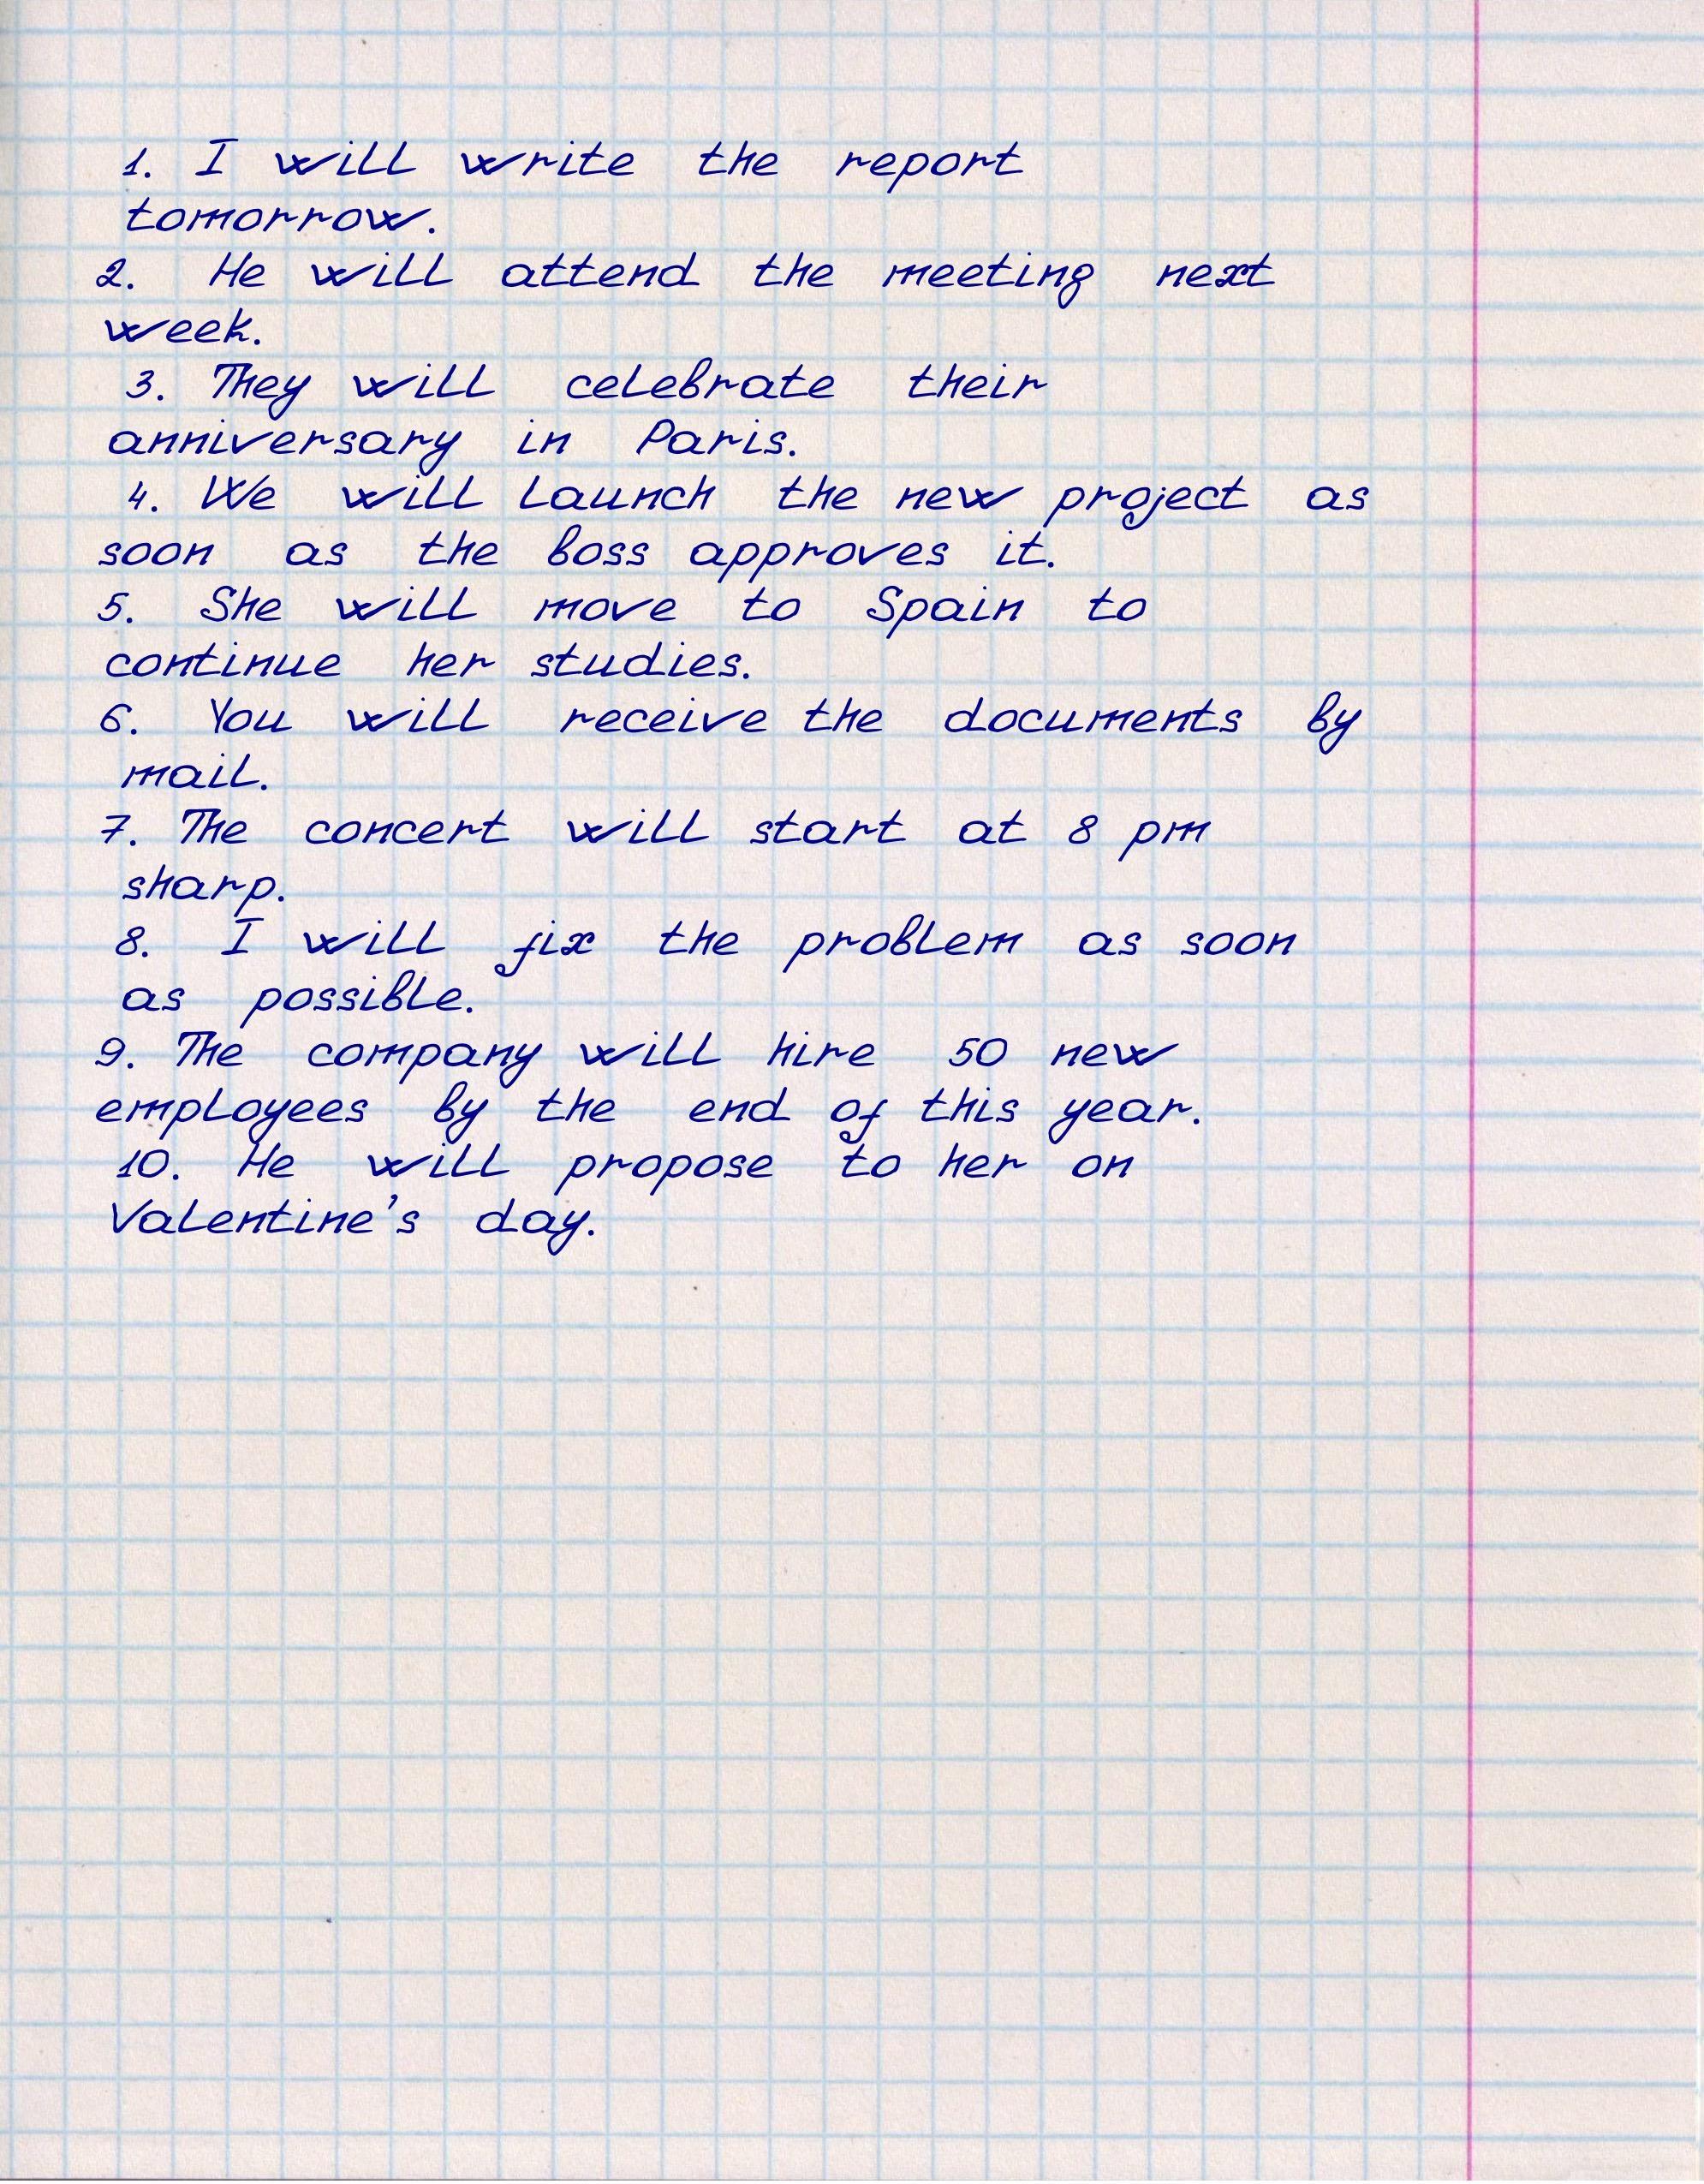 1. I will write the report
tomorrow.
2. He will attend the meeting next
week.
3. They will celebrate their
anniversary in Paris.
4. We will launch the new project as
soon as the boss approves it.
5. She will move to Spain to
continue her studies.
6. You will receive the documents by
mail.
7. The concert will start at 8 pm
sharp.
8. I will fix the problem as soon
as possible.
9. The company will hire 50 new
employees by the end of this year.
10. He will propose to her on
Valentine's day.